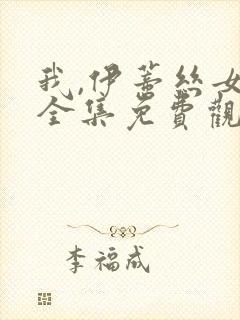 我,伊蕾丝女
全集免費觀
李福成